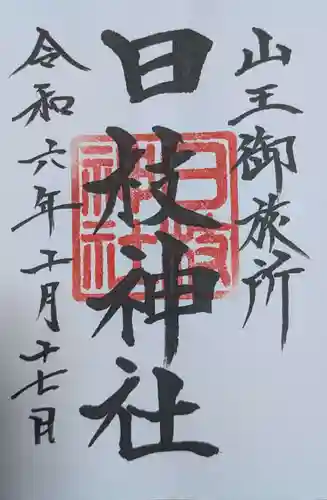 山王御旅所
日枝神社
日枝神社
令和六年工月十七日